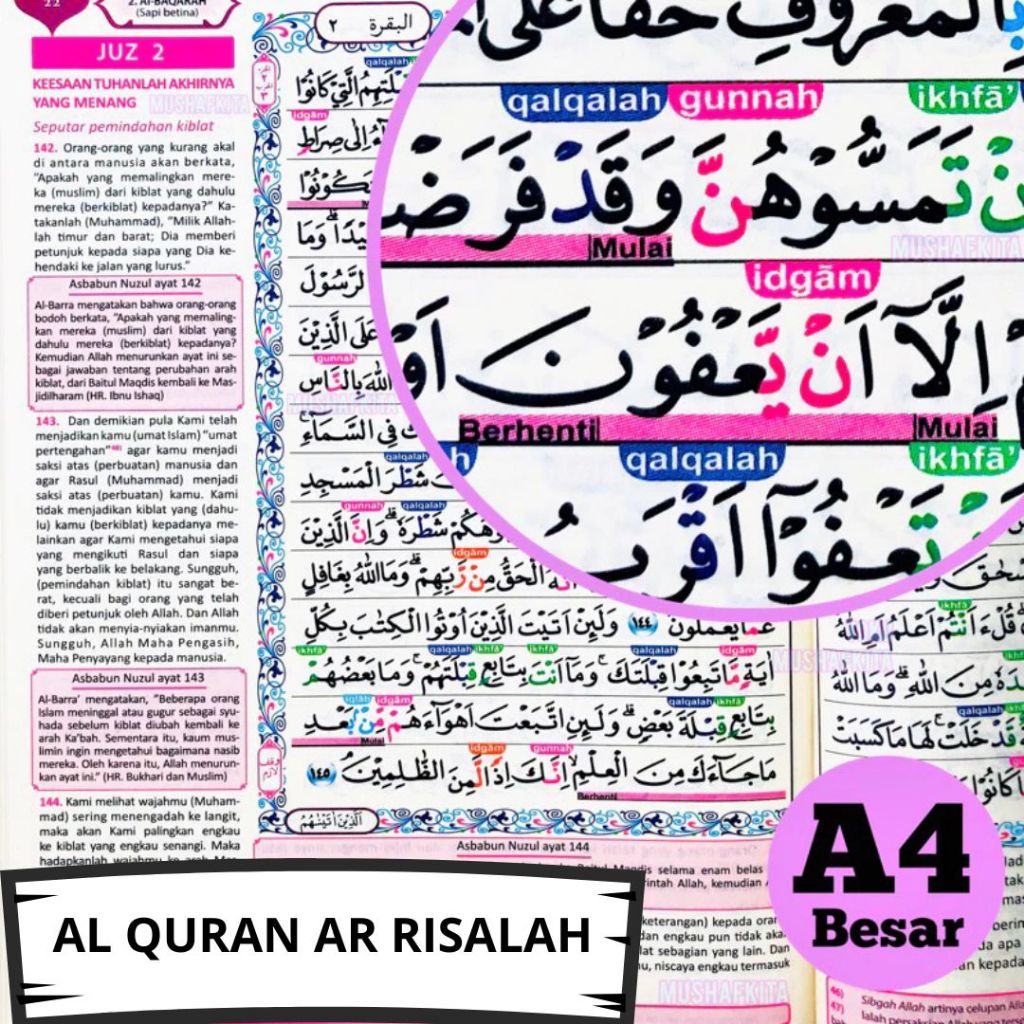 22
2. AL-BAQARAH
(Sapi betina)
JUZ 2
KEESAAN TUHANLAH AKHIRNYA
YANG MENANG
Seputar pemindahan kiblat
142. Orang-orang yang kurang akal
di antara manusia akan berkata,
"Apakah yang memalingkan mere-
ka (muslim) dari kiblat yang dahulu
mereka (berkiblat) kepadanya?" Ka-
takanlah (Muhammad), "Milik Allah-
lah timur dan barat; Dia memberi
petunjuk kepada siapa yang Dia ke-
hendaki ke jalan yang lurus."
Asbabun Nuzul ayat 142
Al-Barra mengatakan bahwa orang-orang
bodoh berkata, "Apakah yang memaling-
kan mereka (muslim) dari kiblat yang
dahulu mereka (berkiblat) kepadanya?
Kemudian Allah menurunkan ayat ini se-
bagai jawaban tentang perubahan arah
kiblat, dari Baitul Maqdis kembali ke Mas-
jidilharam (HR. Ibnu Ishaq)
143. Dan demikian pula Kami telah
menjadikan kamu (umat Islam) "umat
pertengahan" agar kamu menjadi
saksi atas (perbuatan) manusia dan
agar Rasul (Muhammad) menjadi
saksi atas (perbuatan) kamu. Kami
tidak menjadikan kiblat yang (dahu-
lu) kamu (berkiblat) kepadanya me-
lainkan agar Kami mengetahui siapa
yang mengikuti Rasul dan siapa
yang berbalik ke belakang. Sungguh,
(pemindahan kiblat) itu sangat be-
rat, kecuali bagi orang yang telah
diberi petunjuk oleh Allah. Dan Allah
tidak akan menyia-nyiakan imanmu.
Sungguh, Allah Maha Pengasih,
Maha Penyayang kepada manusia.
Asbabun Nuzul ayat 143
Al-Barra' mengatakan, "Beberapa orang
Islam meninggal atau gugur sebagai syu-
hada sebelum kiblat diubah kembali ke
arah Ka'bah. Sementara itu, kaum mus-
limin ingin mengetahui bagaimana nasib
mereka. Oleh karena itu, Allah menurun-
kan ayat ini." (HR. Bukhari dan Muslim)
144. Kami melihat wajahmu (Muham-
mad) sering menengadah ke langit,
maka akan Kami palingkan engkau
ke kiblat yang engkau senangi. Maka
البقرة ٢
qalqalah
الَّتِيْ كَانُوْا
idgām
اِلٰى صِرَاطٍ
وَمَا
عَلَى الَّذِيْنَ
gunnah
بِالنَّاسِ
فِى السَّمَاۤءِ
qalqalah
شَطْرَ الْمَسْجِدِ
gunnah qalqalah
شَطْرَهٗ ۗ وَاِنَّ الَّذِيْنَ
idgām
الْحَقُّ مِنْ رَّبِّهِمْ ۗ وَمَا اللّٰهُ بِغَافِلٍ
عَمَّا يَعْمَلُوْنَ ١٤٤ وَلَىِٕنْ اَتَيْتَ الَّذِيْنَ اُوْتُوا الْكِتٰبَ بِكُلِّ
ikhfā qalqalah ikhfā qalqalah idgām
اٰيَةٍ مَّا تَبِعُوْا قِبْلَتَكَ ۚ وَمَآ اَنْتَ بِتَابِعٍ قِبْلَتَهُمْ ۚ وَمَا بَعْضُهُمْ
iqlāb idgām qalqalah
بِتَابِعٍ قِبْلَةَ بَعْضٍ ۗ وَلَىِٕنِ اتَّبَعْتَ اَهْوَاۤءَهُمْ مِّنْۢ بَعْدِ
Mulai
idgām gunnah
مَا جَاۤءَكَ مِنَ الْعِلْمِ ۙ اِنَّكَ اِذًا لَّمِنَ الظّٰلِمِيْنَ ١٤٥
Berhenti
اَلَّذِيْنَ اٰتَيْنٰهُمُ
Asbabun Nuzul ayat 144
بِالْمَعْرُوْفِ حَقًّا عَلَى
qalqalah gunnah ikhfā'
تَمَسُّوْهُنَّ وَقَدْ فَرَضْ
Mulai
idgām
اِلَّآ اَنْ يَّعْفُوْنَ اَوْ
Berhenti Mulai
qalqalah ikhfā'
تَعْفُوْٓا اَقْرَبُ
قُلْ ءَاَنْتُمْ اَعْلَمُ اَمِ اللّٰهُ
مِنَ اللّٰهِ ۗ وَمَا اللّٰهُ
قَدْ خَلَتْ ۚ لَهَا مَا كَسَبَتْ
A4
Besar
AL QURAN AR RISALAH
selama enam belas
keterangan) kepada
dan engkau pun tidak
sebagian yang lain. Dan
niscaya engkau termasuk
46) Sibgah Allah artinya celupan
47)
MUSHAFKITA